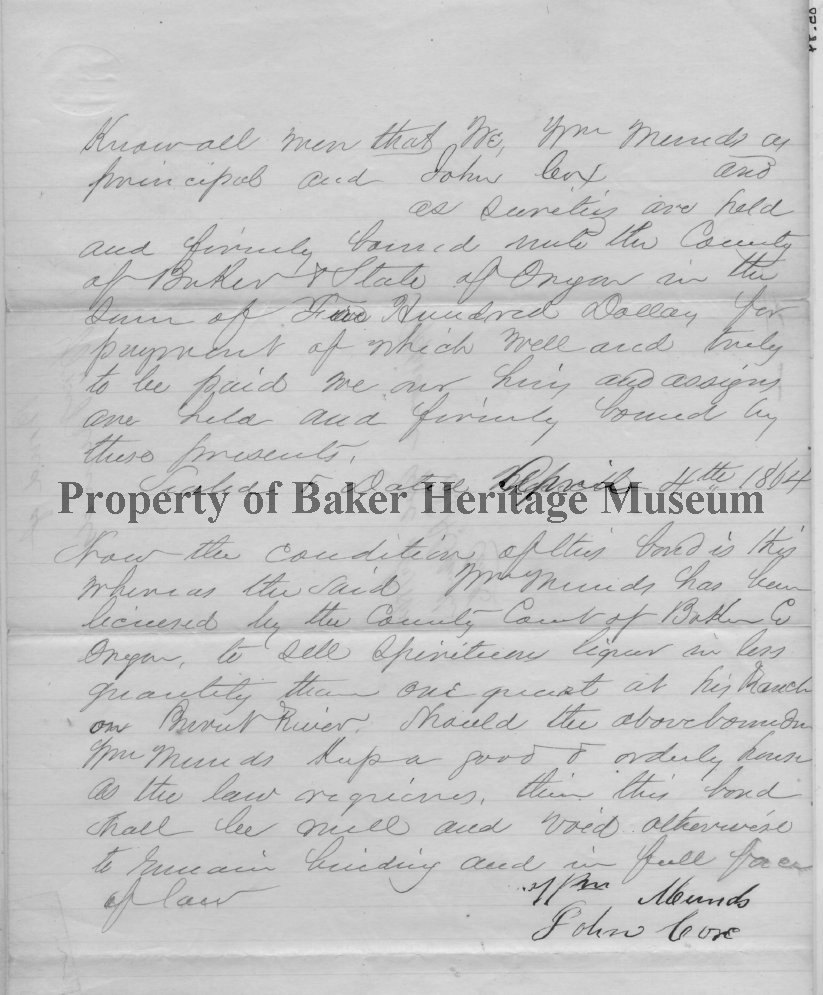 Know all men that We, Wm Munds as
principal and John Cox and
as sureties are held
and firmly bound unto the County
of Baker & State of Oregon in the
sum of Five Hundred Dollars for
payment of which well and truly
to be paid we our heirs and assigns
are held and firmly bound by
these presents.
Sealed & Dated April 4th 1864
Property of Baker Heritage Museum
Now the condition of this bond is this
whereas the said Wm Munds has been
licensed by the County Court of Baker Co
Oregon, to sell spirituous liquor in less
quantity than one quart at his Ranch
on Burnt River. Should the above bounden
Wm Munds Keep a good & orderly house
as the law requires, then this bond
shall be null and void otherwise
to remain binding and in full force
of law
Wm Munds
John Cox